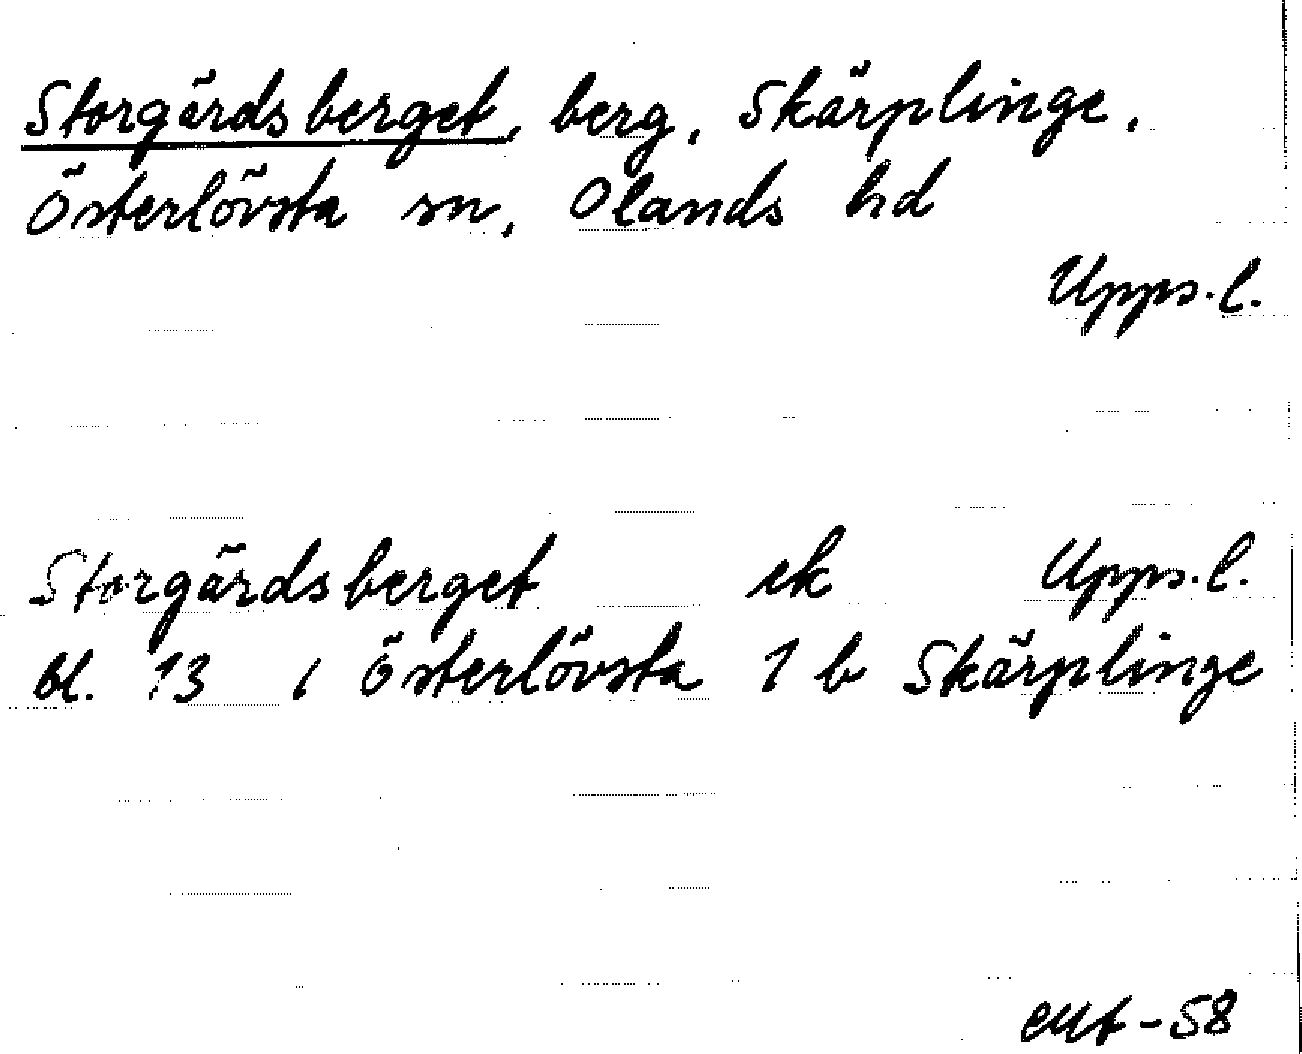 Storgärdsberget, berg, Skärplinge,
Österlövsta sn, Olands hd
Upps.l.
Storgärdsberget ek Upps.l.
bl. 13 i Österlövsta 1 b Skärplinge
-58